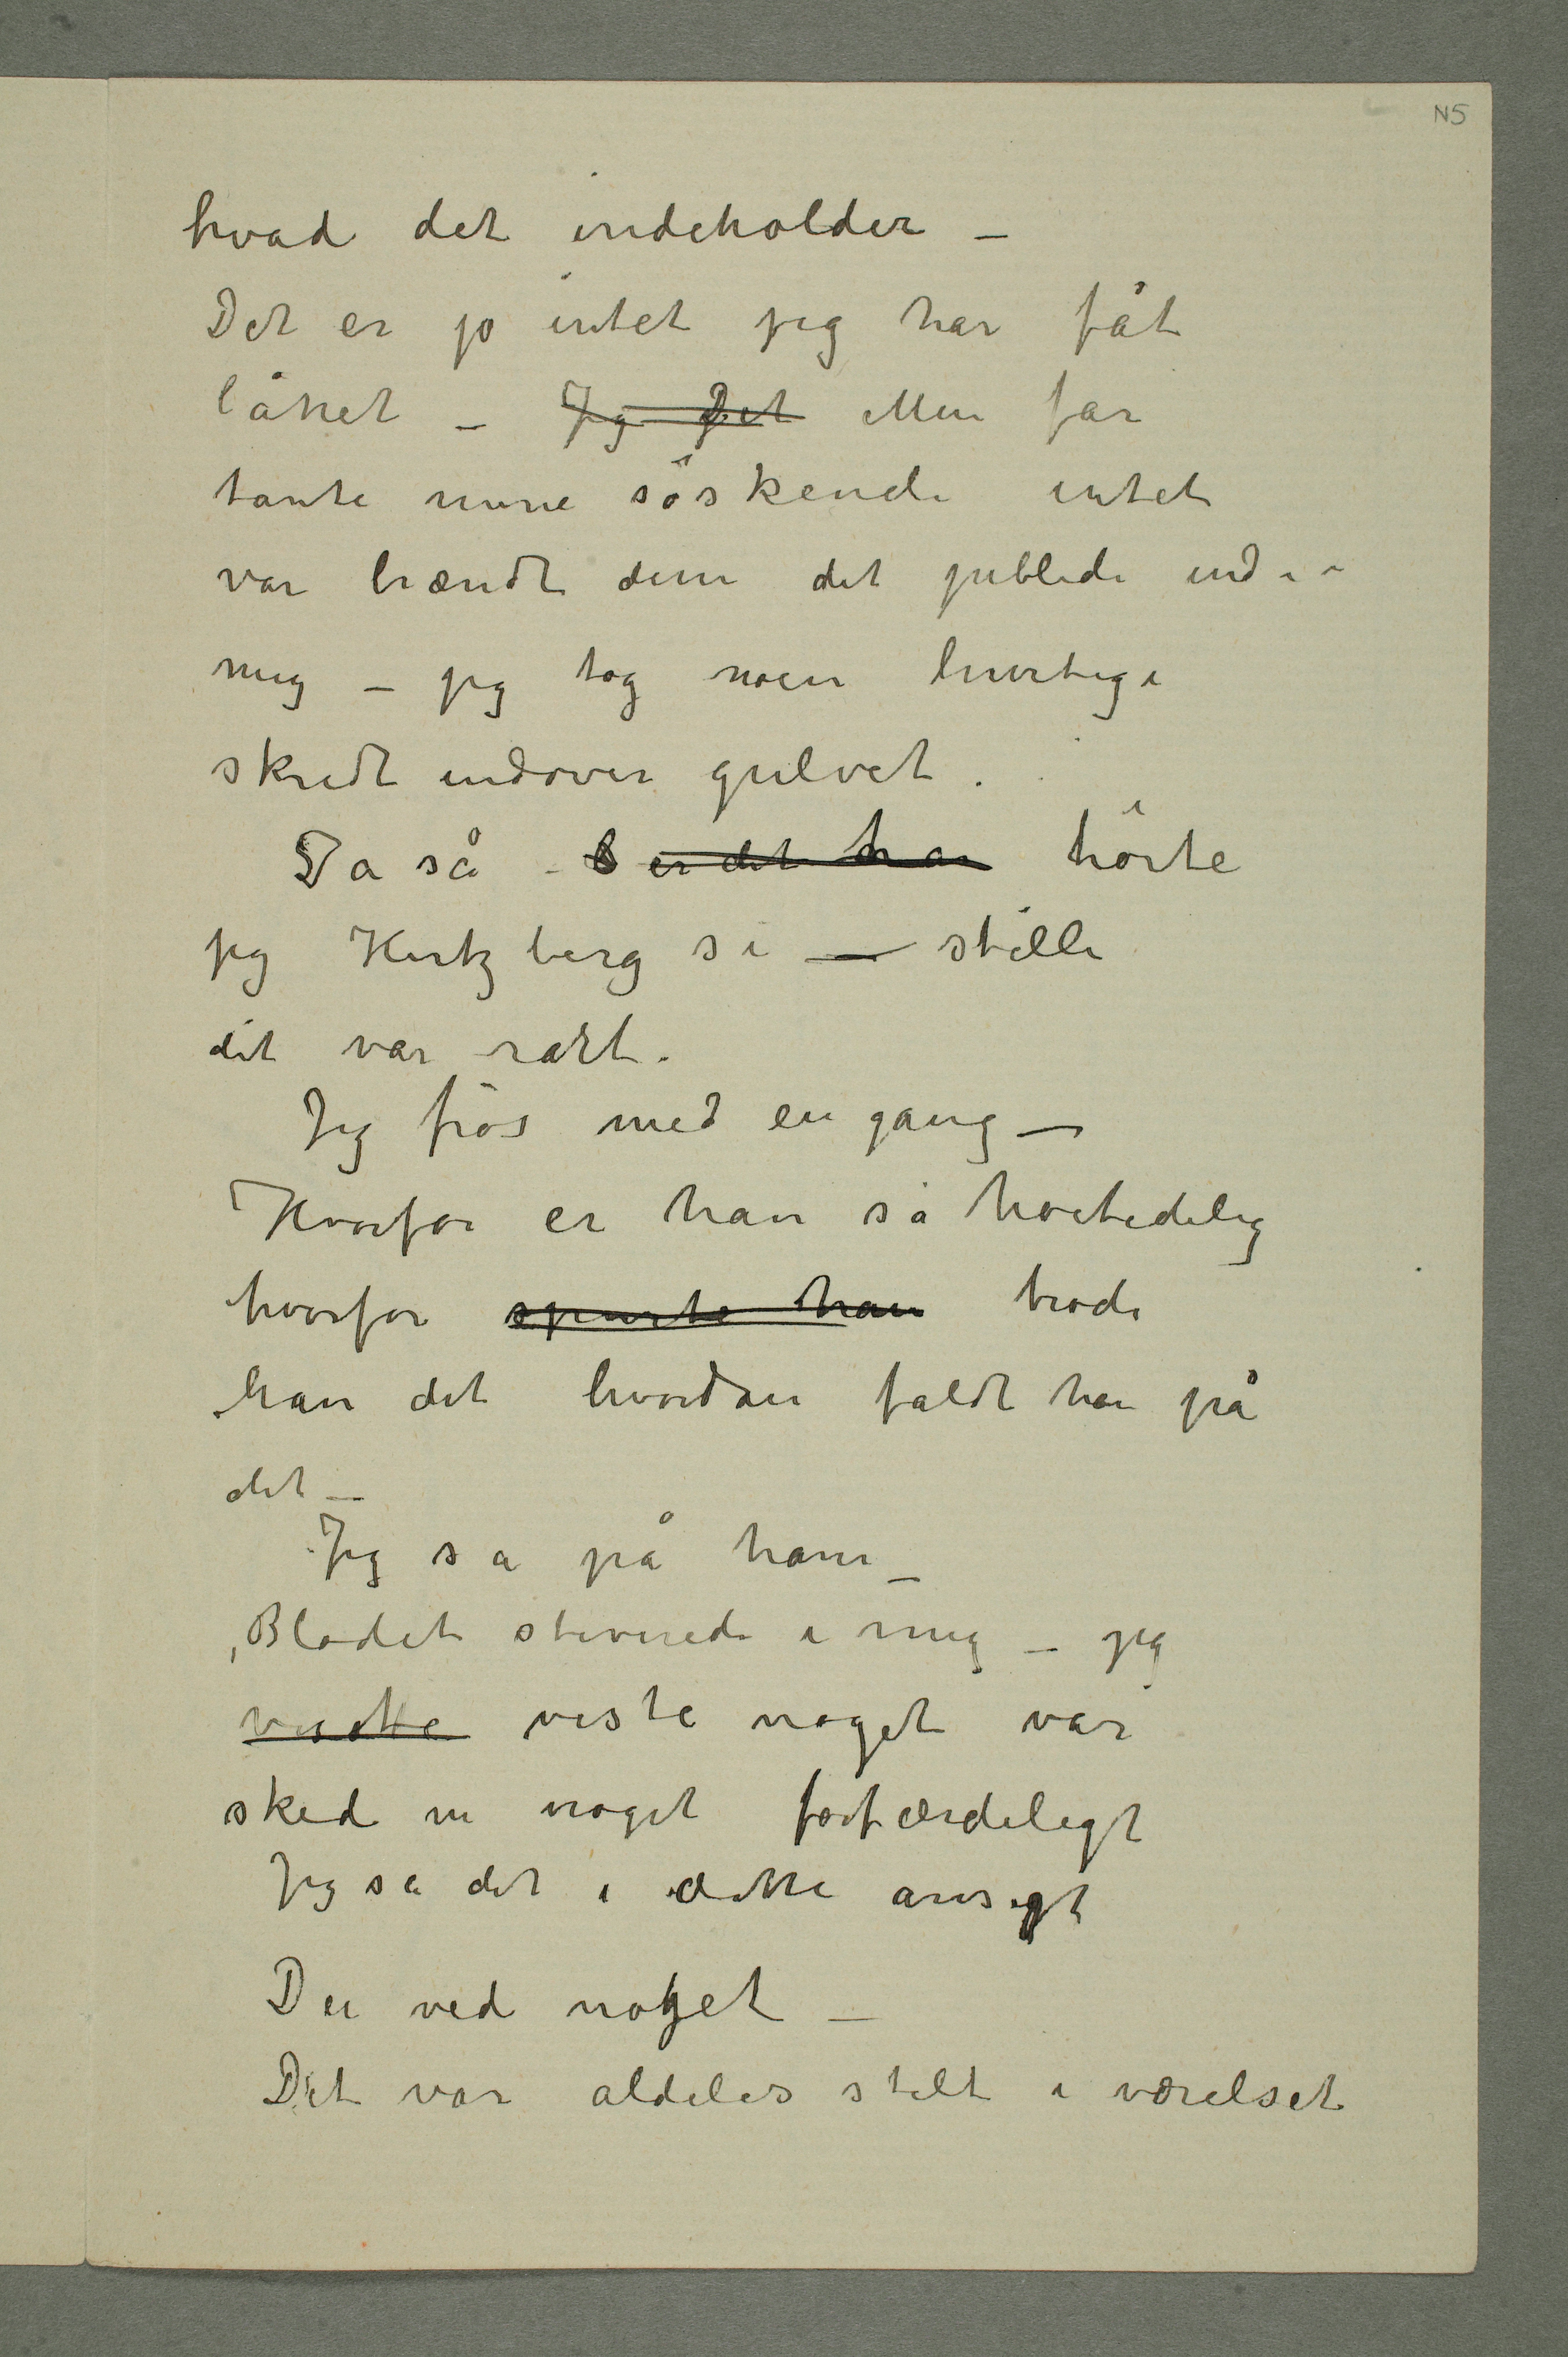 N5
hvad det indeholder –
Det er jo intet jeg har fåt
lånet – Jeg Det Men far
tante mine söskende intet
var hændt dem det jublede ind i
mig – jeg tog noen hurtige
skridt indover gulvet.
Ja så – S er det han hörte
jeg Hertzberg si — stille
det var rart.
Jeg frös med en gang –
Hvorfor er han så höitidelig
hvorfor spurte han trode
han det hvordan faldt han på
det –
Jeg sa på ham –
Blodet stivnede i mig – jeg
viste noget var
sked noget forfærdeligt
Jeg sa det i dette ansigt
Du ved noget –
Det var aldeles stilt i værelset